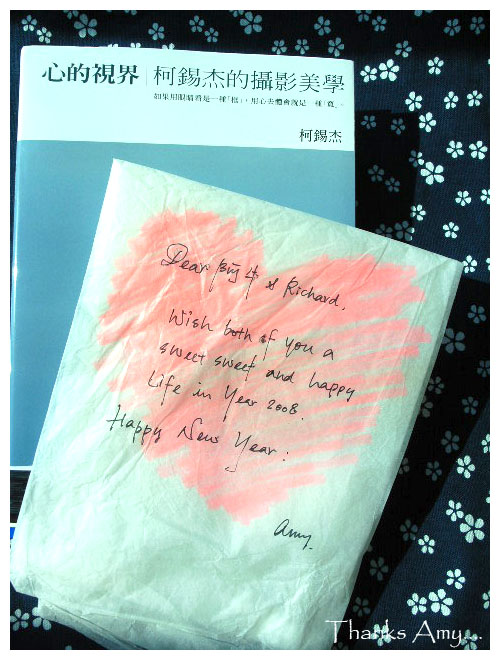 心的視界｜柯錫杰的攝影美學
柯錫杰
Dear 牛 & Richard,
Wish both of you a
sweet sweet and happy
Life in Year 2008.
Happy New Year.
Amy.
Thanks Amy....